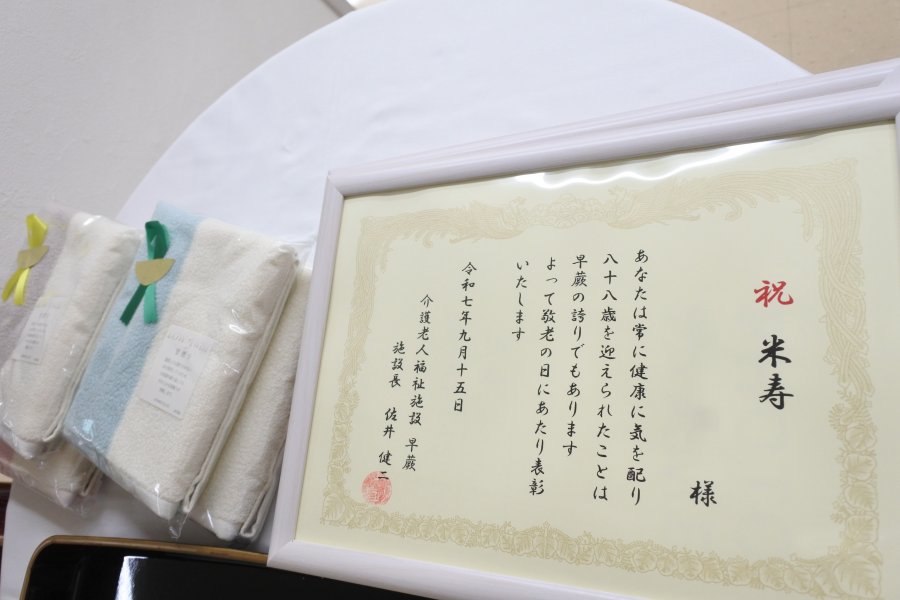 祝 米寿
様
あなたは常に健康に気を配り
八十八歳を迎えられたことは
早蕨の誇りでもあります
よって敬老の日にあたり表彰
いたします
令和七年九月十五日
介護老人福祉施設 早蕨
施設長 佐井 健二